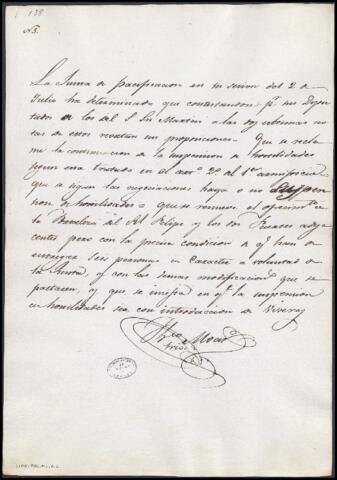 138
N3.
La Junta de pacificacion en su sesion del 2 de
Julio ha determinado que contestandon pr. sus Dipu
tados a los del S. Sn. Martin a las dos ultimas no
tas de estos reiteran sus proposiciones. Que se recla
me la continuacion de la suspension de hostilidades
segun esta tratado en el artº. 2º del 1er armisticio
que se sigan las negociaciones haya o no suspen
sion de hostilidades: que se renueve el ofrecimto. de
la Fortaleza del Rl. Felipe y los dos Fuertes adya
centes pero con la precisa condicion de qe. han de
entregar seis personas en Caracter a voluntad de
la Junta, y con las demas modificaciones que se
pactaren, y que se insista en qe. la suspension
de hostilidades sea con introduccion de Viveres